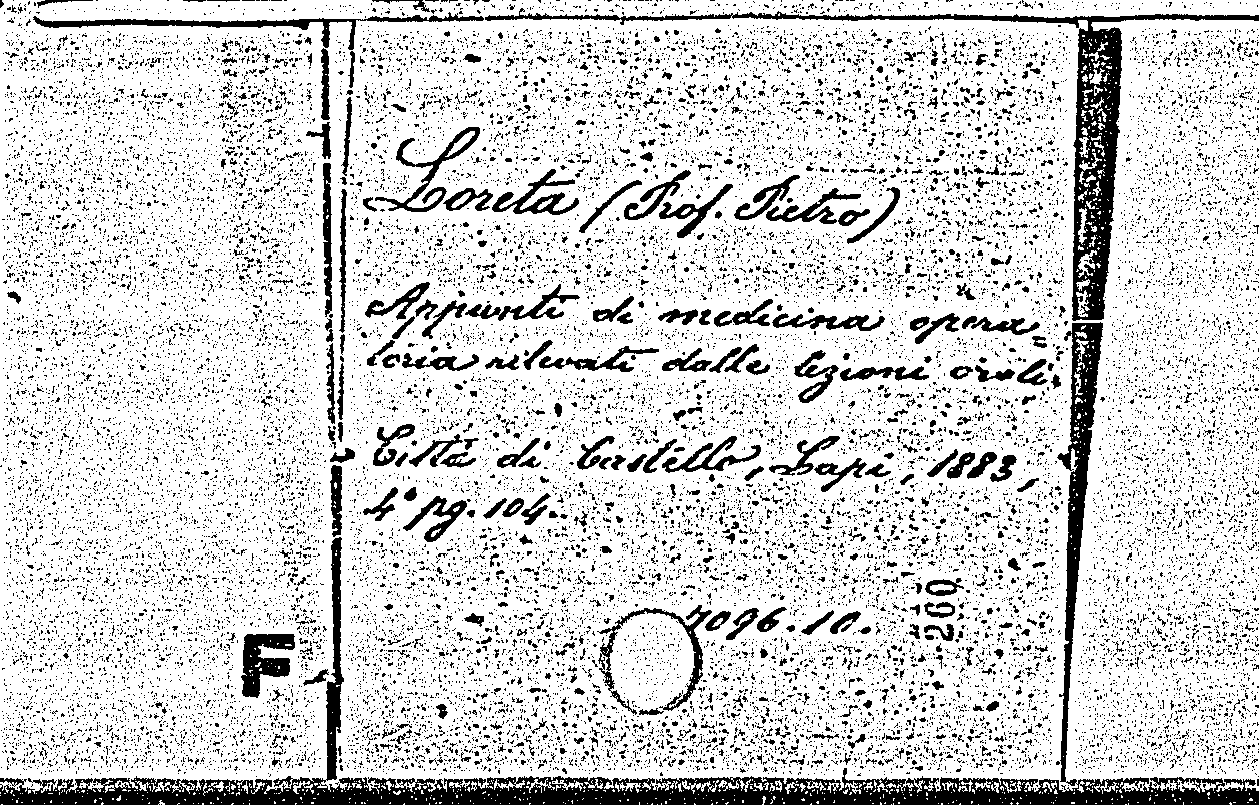 Loreta (Prof. Pietro)
Appunti di medicina opera=
toria rilevati dalle lezioni orali.
Città di Castello, Lapi, 1883,
4° pg. 104.
7096.10.
260
F